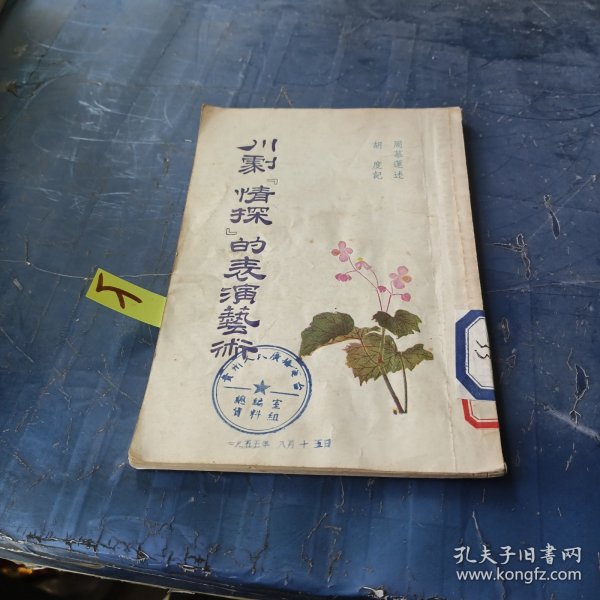 周慕蓮述
胡度記
川劇『情探』的表演藝術
貴州人民廣播電台
總編室
資料組
一九五五年 八月十五日
孔夫子旧书网
www.kongfz.com